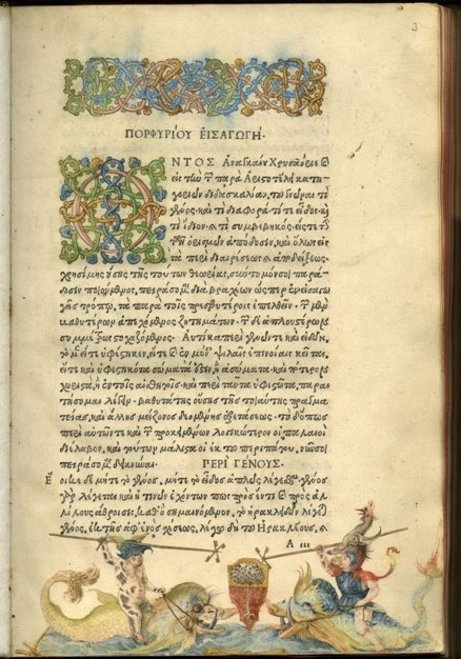 3
ΠΟΡΦΥΡΙΟΥ ΕΙΣΑΓΩΓΗ·
ΝΤΟΣ Ἀναγκαίου Χρυσαόριε καὶ
εἰς τὴν τῶν παρὰ Ἀριστοτέλει κατη
γοριῶν διδασκαλίαν, τοῦ γνῶναι τί
γένος· καὶ τί διαφορά· τί τε εἶδος· καὶ
τί ἴδιον· καὶ τί συμβεβηκός· εἴς τε τὴν
τῶν ὁρισμῶν ἀπόδοσιν, καὶ ὅλως εἰς
τὰ περὶ διαιρέσεως καὶ ἀποδείξεως·
χρησίμης οὔσης τῆς τούτων θεωρίας, σύντομόν σοι παρά-
δοσιν ποιούμενος, πειράσομαι διὰ βραχέων ὥσπερ ἐν εἰσαγω
γῆς τρόπῳ, τὰ παρὰ τοῖς πρεσβυτέροις ἐπελθεῖν· τῶν μὲν
βαθυτέρων ἀπεχόμενος ζητημάτων. τῶν δὲ ἁπλουστέρων
συμμέτρως στοχαζόμενος. Αὐτίκα περὶ γενῶν τε καὶ εἰδῶν,
τὸ μὲν εἴτε ὑφέστηκεν, εἴτε καὶ ἐν μόναις ψιλαῖς ἐπινοίαις κεῖται,
εἴτε καὶ ὑφεστηκότα σώματά ἐστιν, ἢ ἀσώματα· καὶ πότερον
χωριστὰ, ἢ ἐν τοῖς αἰσθητοῖς· καὶ περὶ ταῦτα ὑφεστῶτα, παραι
τήσομαι λέγειν. βαθυτάτης οὔσης τῆς τοιαύτης πραγμα
τείας, καὶ ἄλλης μείζονος δεομένης ἐξετάσεως. τὸ δὲ ὅπως
περὶ αὐτῶν τε καὶ τῶν προκειμένων λογικώτερον οἱ παλαιοὶ
διέλαβον, καὶ τούτων μάλιστα οἱ ἐκ τοῦ περιπάτου, νῦν σοι
πειράσομαι δεικνύναι. ΠΕΡΙ ΓΕΝΟΥΣ·
οικε δὲ μήτε τὸ γένος, μήτε τὸ εἶδος ἁπλῶς λέγεσθαι· γένος
γὰρ λέγεται καὶ ἡ τινῶν ἐχόντων πως πρὸς ἕν τι καὶ πρὸς ἀλ
λήλους ἄθροισις. καθ' ὃ σημαινόμενον, τὸ ἡρακλειδῶν λέγεται
γένος, ἐκ τῆς ἀφ' ἑνὸς σχέσεως, λέγω δὴ τοῦ Ἡρακλέους, καὶ
Α iii